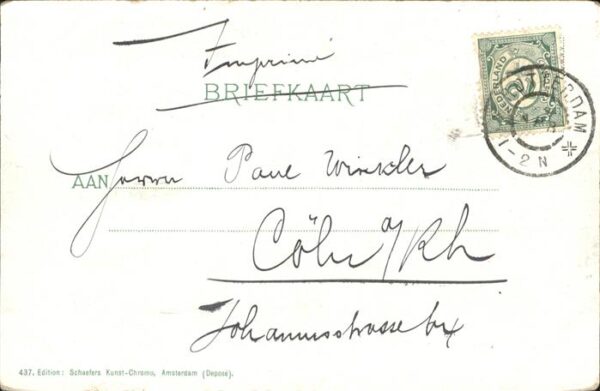 Imprimé
BRIEFKAART
NEDERLAND
TERDAM
1-2 N
AAN Herrn Paul Winkler
Cöln a/Rh
Johannisstrasse
437. Edition: Schaefers Kunst-Chromo, Amsterdam (Depose).